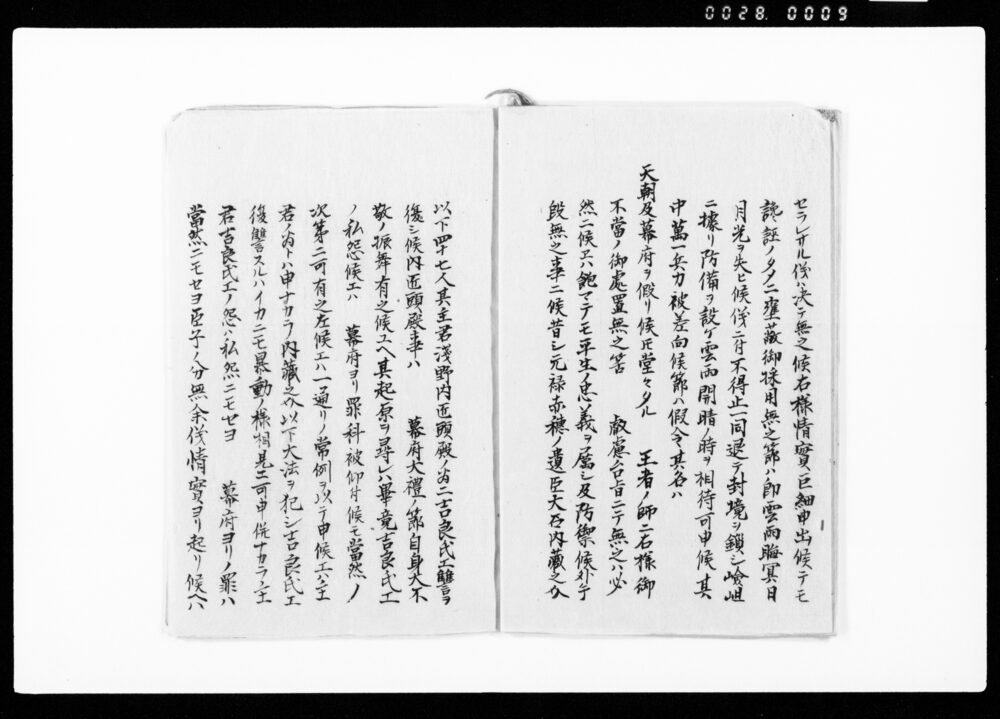 0028. 0009
セラレサル儀ハ決テ無之候右様情實巨細申出候テモ
讒誣ノタメニ壅蔽御採用無之節ハ即雲雨晦冥日
月光ヲ失ヒ候儀ニ付不得止一同退テ封境ヲ鎖シ嶮岨
ニ據リ防備ヲ設ケ雲雨開晴ノ時ヲ相待可申候其
中萬一兵力被差向候節ハ假令其名ハ
天朝及幕府ヲ假リ候圧堂々タル 王者ノ師ニ右様御
不當ノ御處置無之筈 叡慮台旨ニテ無之ハ必
然ニ候エハ飽マテモ平生ノ忠義ヲ厲シ及防禦候外手
段無之事ニ候昔シ元禄赤穂ノ遺臣大石内藏之介
以下四十七人其主君淺野内匠頭殿ノ為ニ吉良氏エ讐ヲ
復シ候内匠頭殿事ハ 幕府大禮ノ節自身大不
敬ノ振舞有之候エヘ其起原ヲ尋レハ畢竟吉良氏エ
ノ私怨候エハ 幕府ヨリ罪科被仰付候モ當然ノ
次第ニ可有之左候エハ一通リノ常例ヲ以テ申候エハ主
君ノ為トハ申ナカラ内藏之介以下大法ヲ犯シ吉良氏エ
復讐スルハイカニモ暴動ノ様相見エ可申併ナカラ主
君吉良氏エノ怨ハ私怨ニモセヨ 幕府ヨリノ罪ハ
當然ニモセヨ臣子ノ分無余儀情實ヨリ起リ候ヘハ